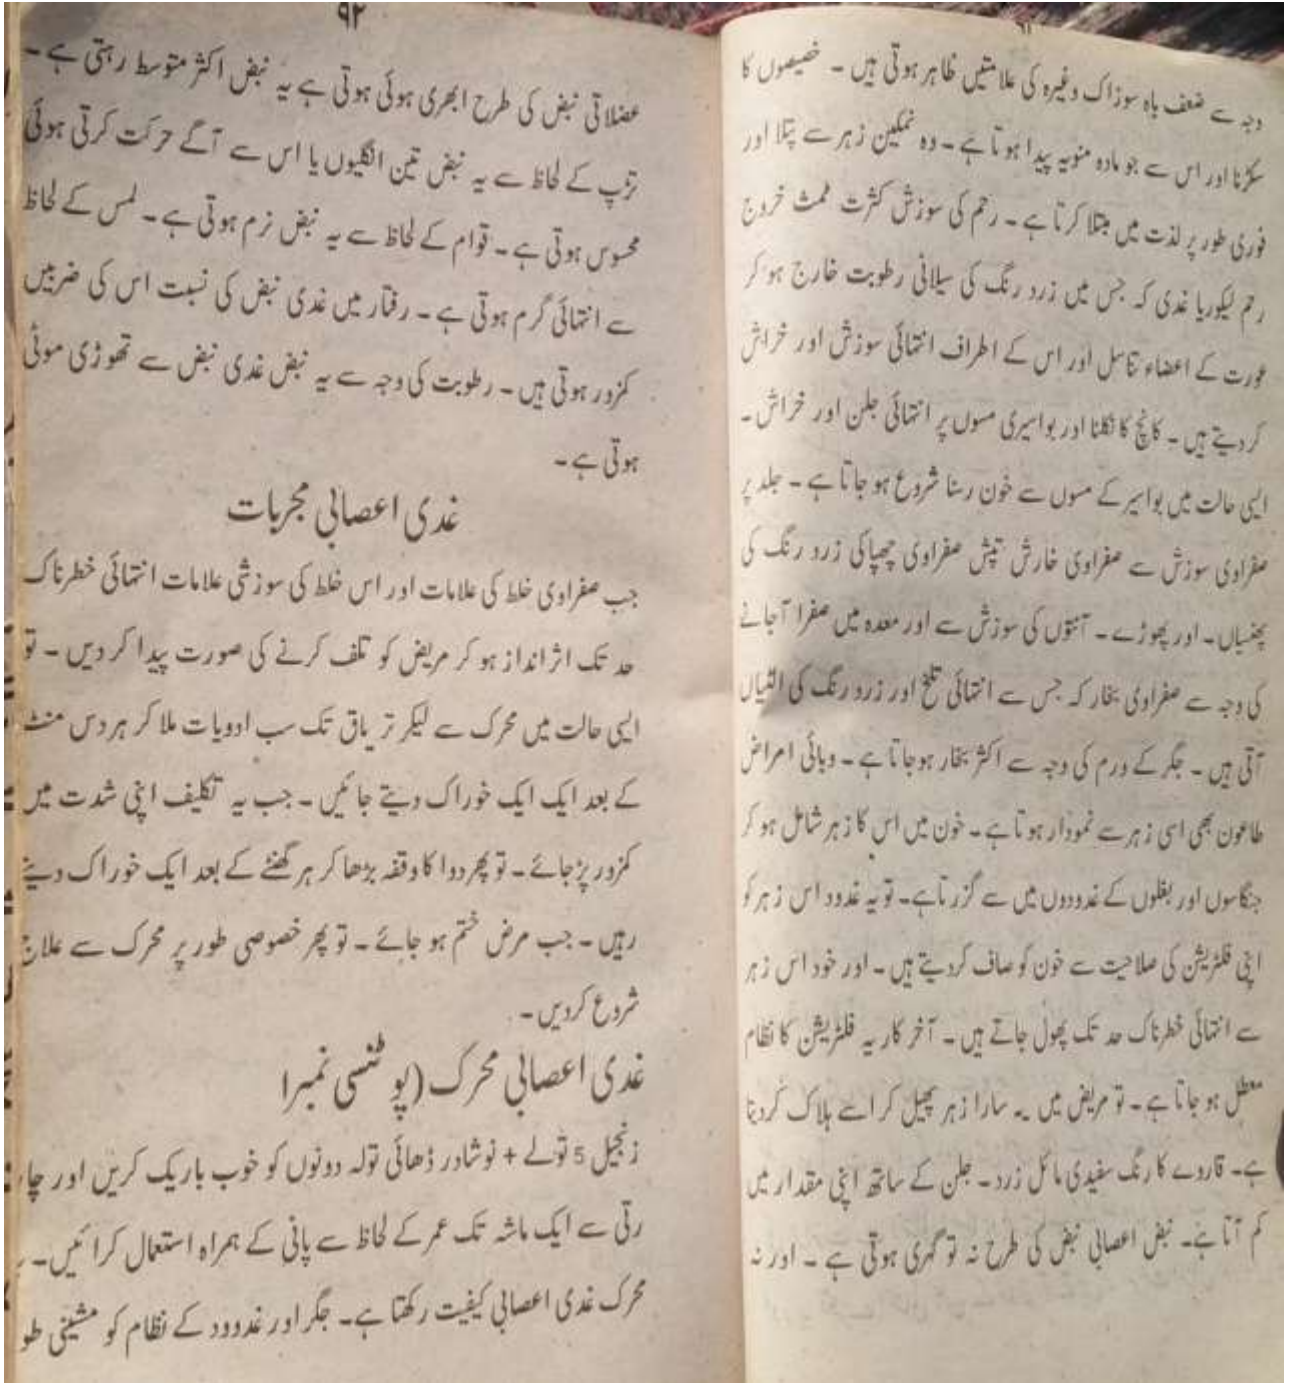 ۹۱
وجہ سے ضعف باہ سوزاک وغیرہ کی علامتیں ظاہر ہوتی ہیں ۔ خصیصوں کا
سکڑنا اور اس سے جو مادہ منویہ پیدا ہوتا ہے ۔ وہ نمکین زہر سے پتلا اور
فوری طور پر لذت میں مبتلا کرتا ہے ۔ رحم کی سوزش کثرت طمث خروج
رحم لیکوریا غدی کہ جس میں زرد رنگ کی سیلانی رطوبت خارج ہو کر
عورت کے اعضاء تناسل اور اس کے اطراف انتہائی سوزش اور خراش
کر دیتے ہیں ۔ کانچ کا نکلنا اور بواسیری مسوں پر انتہائی جلن اور خراش ۔
ایسی حالت میں بواسیر کے مسوں سے خون رسنا شروع ہو جاتا ہے ۔ جلد پر
صفراوی سوزش سے صفراوی خارش تپش صفراوی چھپاکی زرد رنگ کی
پھنسیاں ۔ اور پھوڑے ۔ آنتوں کی سوزش سے اور معدہ میں صفرا آجانے
کی وجہ سے صفراوی بخار کہ جس سے انتہائی تلخ اور زرد رنگ کی الٹیاں
آتی ہیں ۔ جگر کے ورم کی وجہ سے اکثر بخار ہوجاتا ہے ۔ وبائی امراض
طاعون بھی اسی زہر سے نمودار ہوتا ہے ۔ خون میں اس کا زہر شامل ہو کر
جنگاسوں اور بغلوں کے غدودوں میں سے گزرتا ہے ۔ تو یہ غدود اس زہر کو
اپنی فلٹریشن کی صلاحیت سے خون کو صاف کردیتے ہیں ۔ اور خود اس زہر
سے انتہائی خطرناک حد تک پھول جاتے ہیں ۔ آخر کار یہ فلٹریشن کا نظام
معطل ہو جاتا ہے ۔ تو مریض میں یہ سارا زہر پھیل کر اسے ہلاک کردیتا
ہے ۔ قارورے کا رنگ سفیدی مائل زرد ۔ جلن کے ساتھ اپنی مقدار میں
کم آتا ہے ۔ نبض اعصابی نبض کی طرح نہ تو گہری ہوتی ہے ۔ اور نہ
۹۲
عضلاتی نبض کی طرح ابھری ہوئی ہوتی ہے یہ نبض اکثر متوسط رہتی ہے ۔
تڑپ کے لحاظ سے یہ نبض تین انگلیوں یا اس سے آگے حرکت کرتی ہوئی
محسوس ہوتی ہے ۔ قوام کے لحاظ سے یہ نبض نرم ہوتی ہے ۔ لمس کے لحاظ
سے انتہائی گرم ہوتی ہے ۔ رفتار میں غدی نبض کی نسبت اس کی ضربیں
کمزور ہوتی ہیں ۔ رطوبت کی وجہ سے یہ نبض غدی نبض سے تھوڑی موٹی
ہوتی ہے ۔
غدی اعصابی مجربات
جب صفراوی خلط کی علامات اور اس خلط کی سوزشی علامات انتہائی خطرناک
حد تک اثر انداز ہو کر مریض کو تلف کرنے کی صورت پیدا کر دیں ۔ تو
ایسی حالت میں محرک سے لیکر تریاق تک سب ادویات ملا کر ہر دس منٹ
کے بعد ایک ایک خوراک دیتے جائیں ۔ جب یہ تکلیف اپنی شدت میں
کمزور پڑجائے ۔ تو پھر دوا کا وقفہ بڑھا کر ہر گھنٹے کے بعد ایک خوراک دیتے
رہیں ۔ جب مرض ختم ہو جائے ۔ تو پھر خصوصی طور پر محرک سے علاج
شروع کردیں ۔
غدی اعصابی محرک (پوٹنسی نمبر ا
زنجیل 5 تولے + نوشادر ڈھائی تولہ دونوں کو خوب باریک کریں اور چار
رتی سے ایک ماشہ تک عمر کے لحاظ سے پانی کے ہمراہ استعمال کرائیں ۔
محرک غدی اعصابی کیفیت رکھتا ہے ۔ جگر اور غدوود کے نظام کو مشینی طو